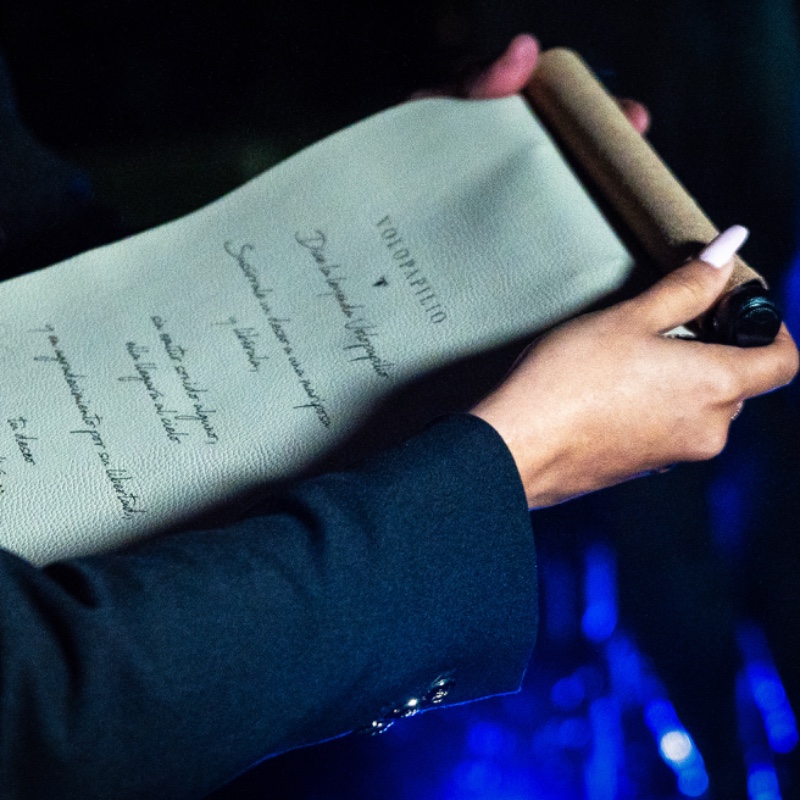 VOLOPAPILIO
Dice la leyenda Volopapilio
Susurrale un deseo a una mariposa
y libérala,
sin emitir sonido alguno,
ella llegará al cielo
y en agradecimiento por su libertad,
tu deseo